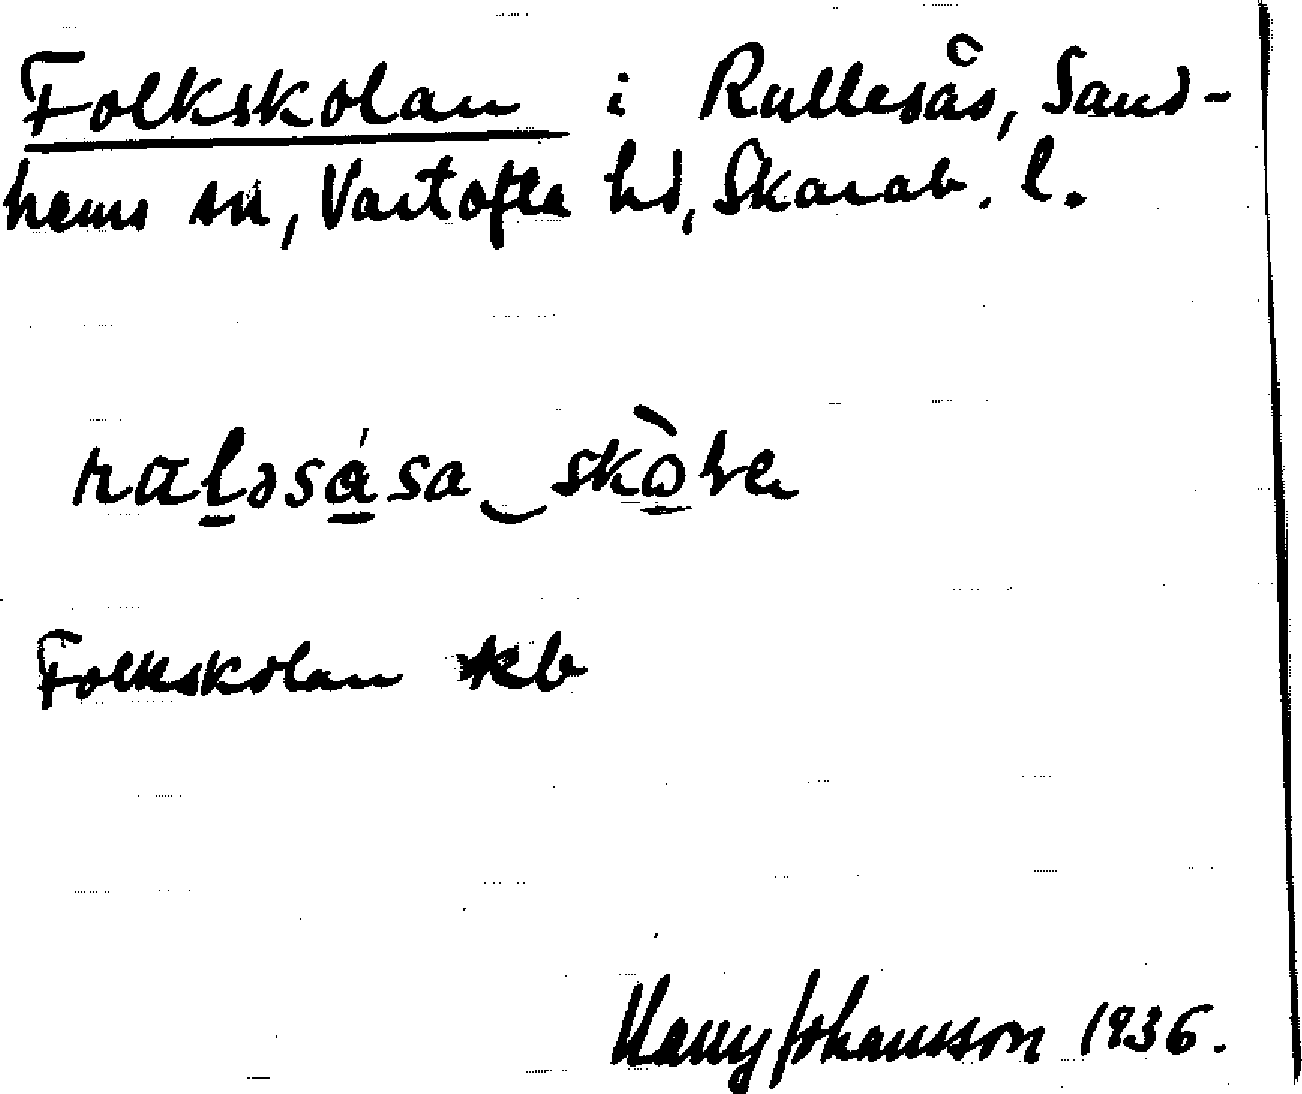 Folkskolan i Rullesås, Sand-
hems sn, Vartofta hd, Skarab. l.
rulǝsåsa skòlen
Folkskolan kb
Harry Johansson 1936.